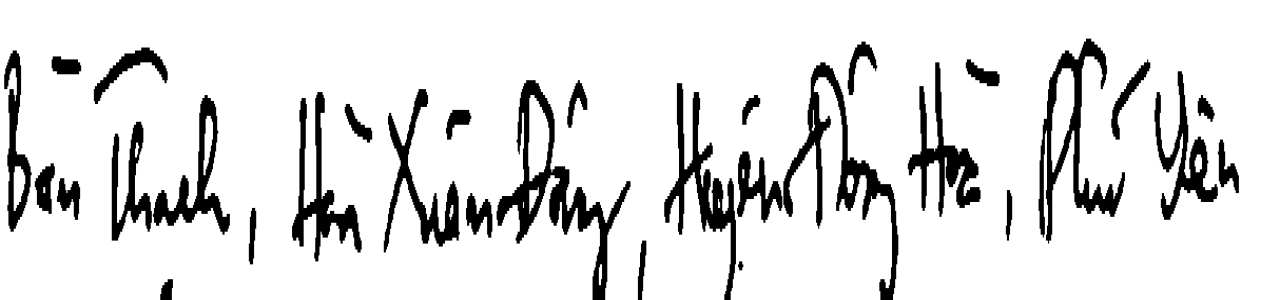 Bàn Thạch, Hoà Xuân Đông, Huyện Đông Hoà, Phú Yên